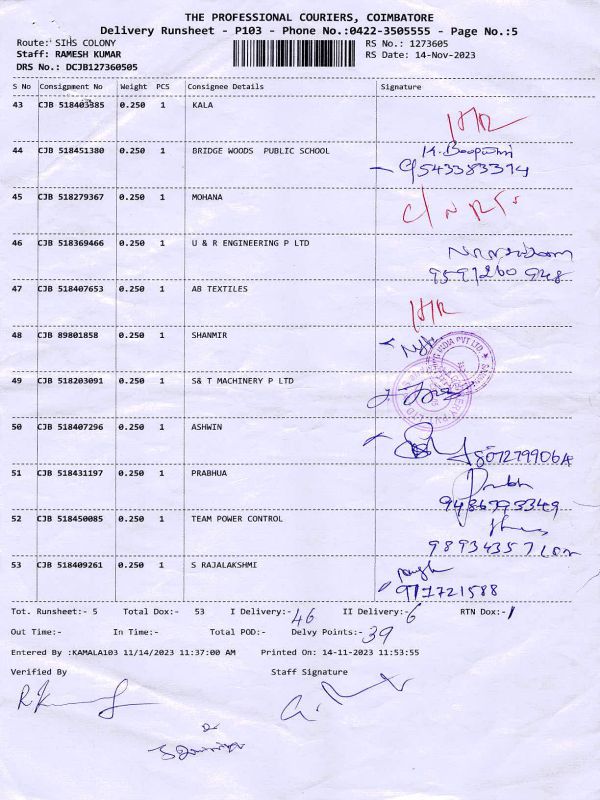 THE PROFESSIONAL COURIERS, COIMBATORE
Delivery Runsheet - P103 - Phone No.:0422-3505555 - Page No.:5
Route: SIHS COLONY RS No.: 1273605
Staff: RAMESH KUMAR RS Date: 14-Nov-2023
DRS No.: DCJB127360505
S No Consignment No Weight PCS Consignee Details Signature
43 CJB 518403385 0.250 1 KALA
44 CJB 518451380 0.250 1 BRIDGE WOODS PUBLIC SCHOOL
9543383314
45 CJB 518279367 0.250 1 MOHANA
46 CJB 518369466 0.250 1 U & R ENGINEERING P LTD
9597260948
47 CJB 518407653 0.250 1 AB TEXTILES
48 CJB 89801858 0.250 1 SHANMIR
49 CJB 518203091 0.250 1 S& T MACHINERY P LTD
50 CJB 518407296 0.250 1 ASHWIN
51 CJB 518431197 0.250 1 PRABHUA
9486793349
52 CJB 518450085 0.250 1 TEAM POWER CONTROL
53 CJB 518409261 0.250 1 S RAJALAKSHMI
Tot. Runsheet:- 5 Total Dox:- 53 I Delivery:- 46 II Delivery:- 6 RTN Dox:- 1
Out Time:- In Time:- Total POD:- Delvy Points:- 39
Entered By :KAMALA103 11/14/2023 11:37:00 AM Printed On: 14-11-2023 11:53:55
Verified By Staff Signature